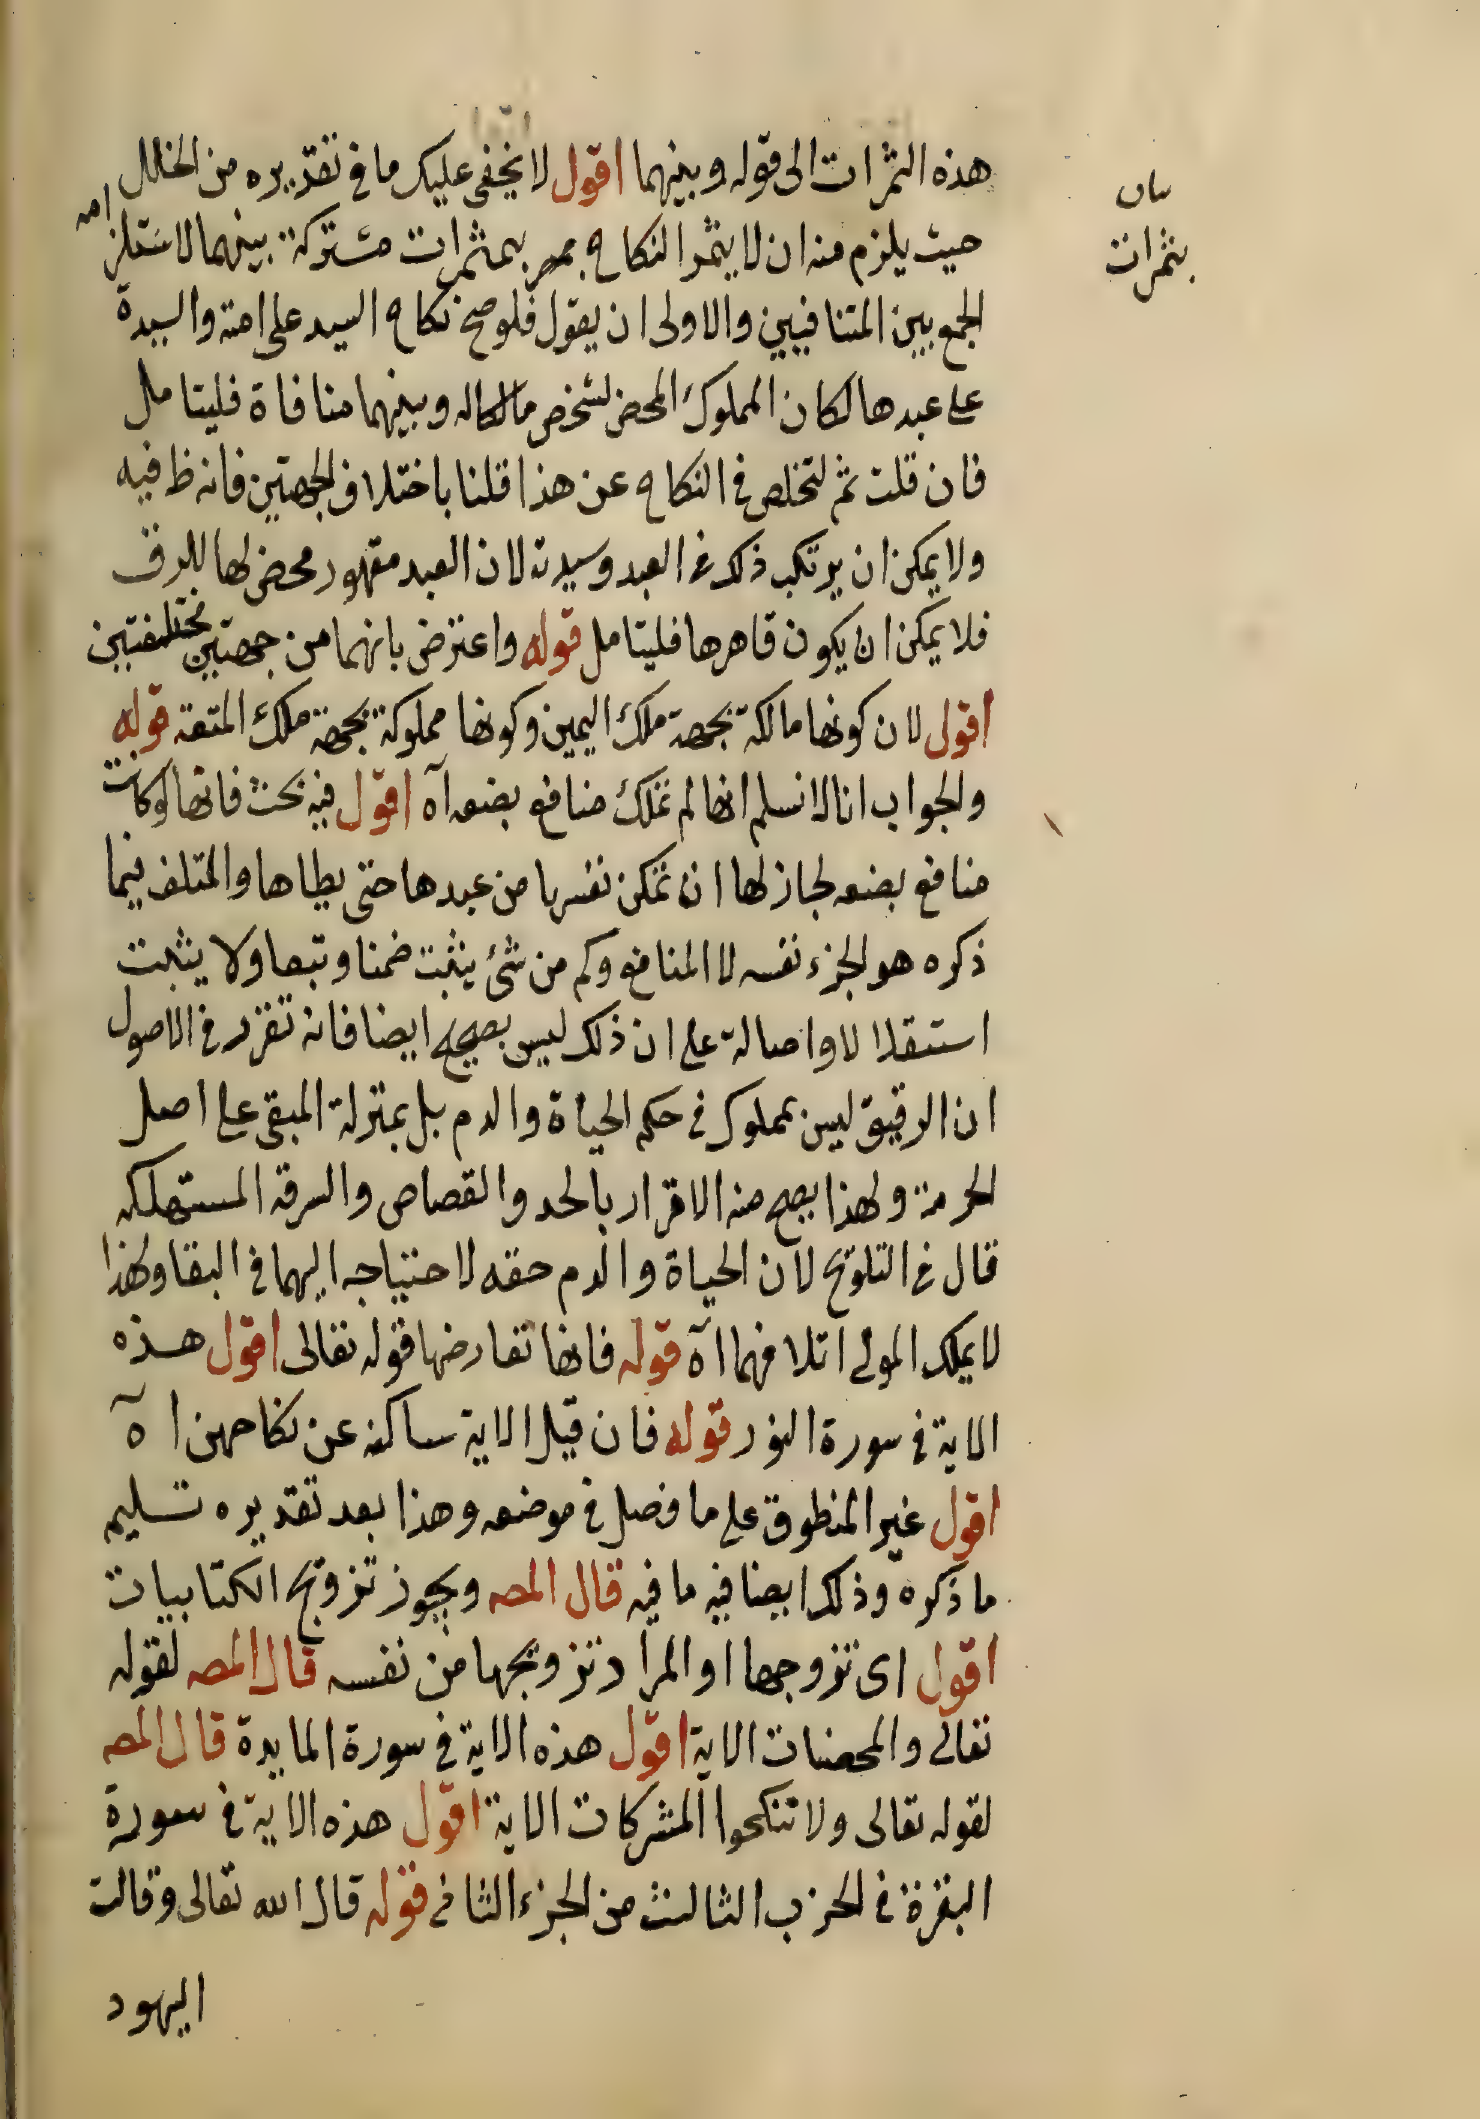 هذه الثمرات الى قوله وبينهما اقول لا يخفى عليك ما في تقديره من الخلل
حيث يلزم منه ان لا يثمر النكاح بمثمرات مشتركة بينهما لاستلزامه
الجمع بين المتنافيين والاولى ان يقول فلو صح نكاح السيد على امته والسيدة
على عبدها لكان المملوك المحض لشخص مالكا له وبينهما منافاة فليتامل
فان قلت ثم لتخلص في النكاح عن هذا قلنا باختلاف الجهتين فانه ظ فيه
ولا يمكن ان يرتكب ذلك في العبد وسيدته لان العبد مقهور محض لها للرق
فلا يمكن ان يكون قاهرها فليتامل قوله واعترض بانهما من جهتين مختلفتين
اقول لان كونها مالكة بجهة ملك اليمين وكونها مملوكة بجهة ملك المتعة قوله
والجواب انا لا نسلم انها لم تملك منافع بضعه آه اقول فيه بحث فانها لو كانت
منافع بضعه لجاز لها ان تمكن نفسها من عبدها حتى يطاها والمتلف فيما
ذكره هو الجزء نفسه لا المنافع وكم من شئ يثبت ضمنا وتبعا ولا يثبت
استقلالا واصالة على ان ذلك ليس بصحيح ايضا فانه تقرر في الاصول
ان الرقيق ليس بمملوك في حكم الحياة والدم بل بمنزلة المبقى على اصل
الحرمة ولهذا يصح منه الاقرار بالحد والقصاص والسرقة المستهلكه
قال في التلويح لان الحياة والدم حقه لاحتياجه اليهما في البقا ولهذا
لا يملك المولى اتلافهما آه قوله فانها تعارضها قوله تعالى اقول هذه
الاية في سورة النور قوله فان قيل الاية ساكنه عن نكاحهن آه
اقول غير المنطوق على ما فصل في موضعه وهذا بعد تقديره تسليم
ما ذكره وذلك ايضا فيه ما فيه قال المصـ ويجوز تزويج الكتابيات
اقول اى تزوجها او المراد تزويجها من نفسه قال المصـ لقوله
تعالى والمحصنات الاية اقول هذه الاية في سورة المايدة قال المصـ
لقوله تعالى ولا تنكحوا المشركات الاية اقول هذه الاية في سورة
البقرة في الحزب الثالث من الجزء الثاني قوله قال الله تعالى وقالت
اليهود
بيان
بثمرات